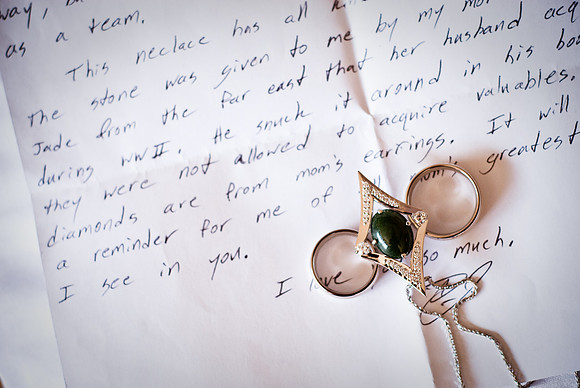 way,
as a team.
This neclace has all
the stone was given to me by my
Jade from the far east that her husband acq
during WWII. He snuck it around in his bo
they were not allowed to acquire valuables.
diamonds are from mom's earrings. It will
a reminder for me of mom's greatest
I see in you.
I love so much.